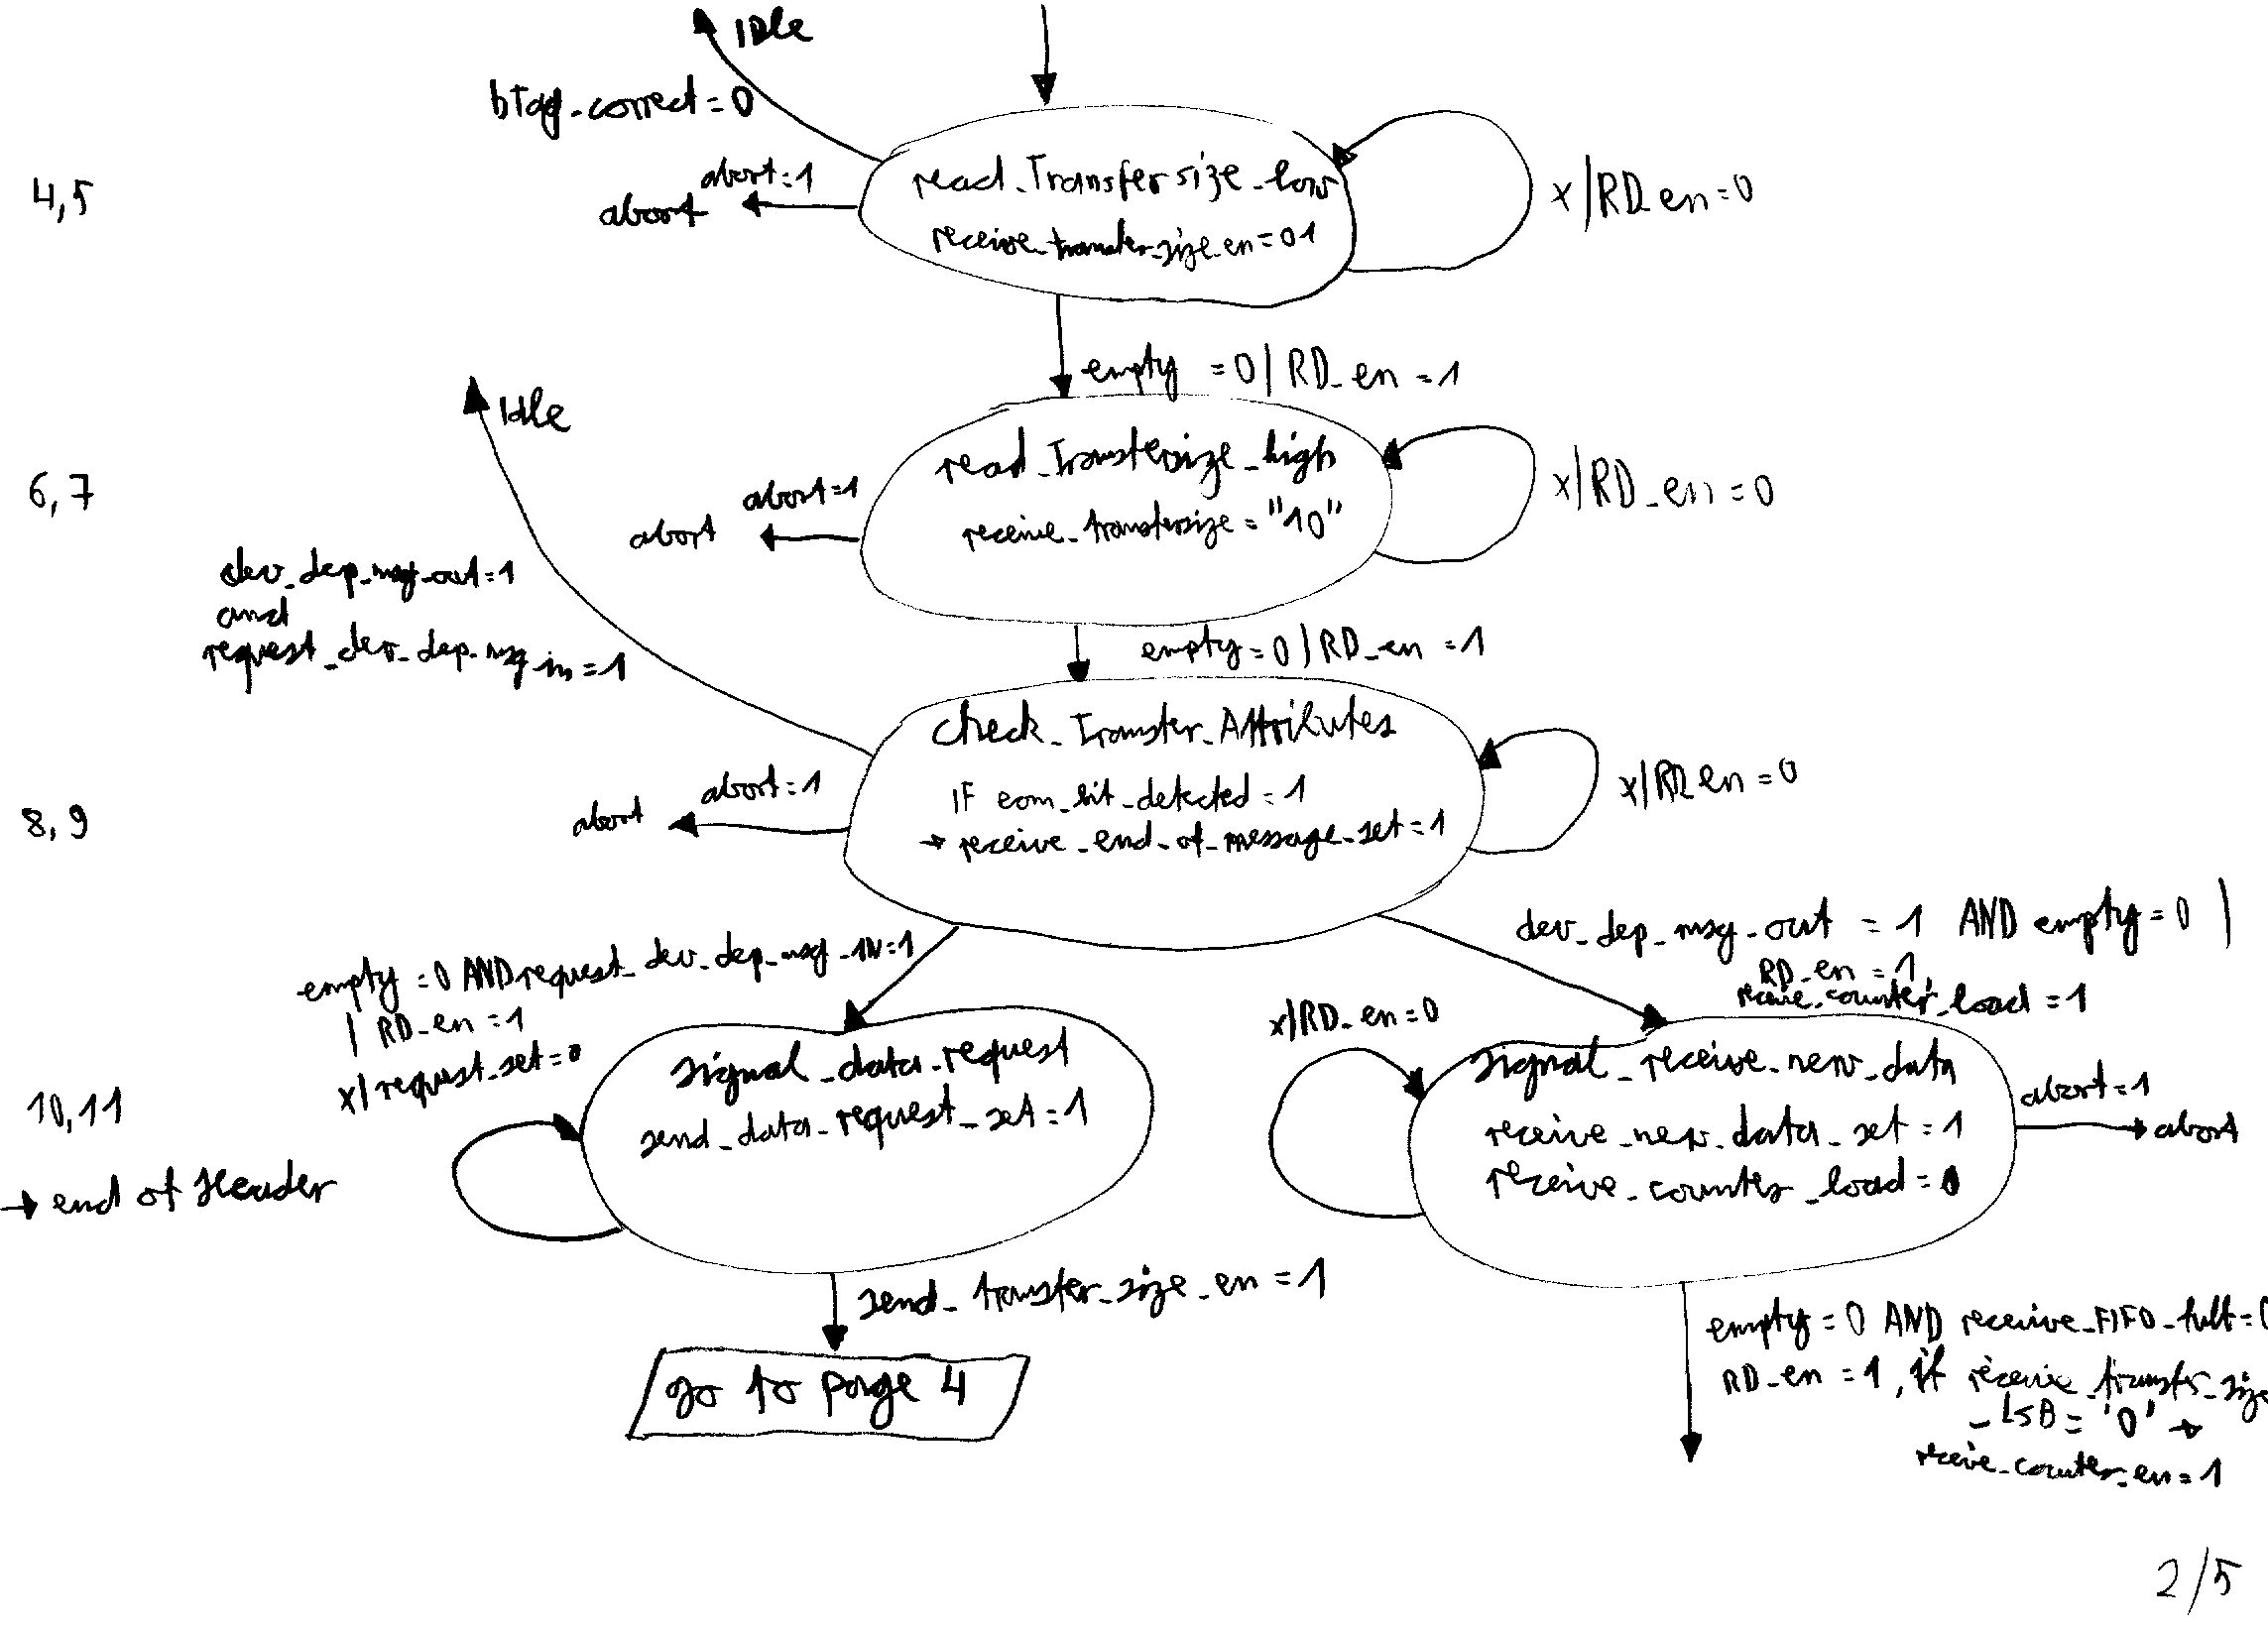 IDle
btag_correct=0
4,5
abort=1
abort
read_Transfersize_low
receive_transfer_size_en=01
x/RD_en=0
empty =0| RD_en =1
Idle
6,7
abort=1
abort
read_Transfersize_high
receive_transfersize="10"
x/RD_en=0
dev_dep_msg_out=1
and
request_dev_dep_msg_in=1
empty=0 | RD_en =1
8,9
abort=1
abort
Check_Transfer_Attributes
IF eom_bit_detected=1
→ receive_end_of_message_set=1
x/RD_en=0
empty=0 AND request_dev_dep_msg_IN=1
| RD_en=1
x/request_set=0
dev_dep_msg_out = 1 AND empty=0 |
RD_en=1,
receive_counter_load=1
10,11
→ end of Header
signal_data_request
send_data_request_set=1
x/RD_en=0
signal_receive_new_data
receive_new_data_set=1
receive_counter_load=0
abort=1
abort
send_transfer_size_en=1
go to page 4
empty=0 AND receive_FIFO_full=0
RD_en=1, if receive_transfer_size
_LSB='0' →
receive_counter_en=1
2/5